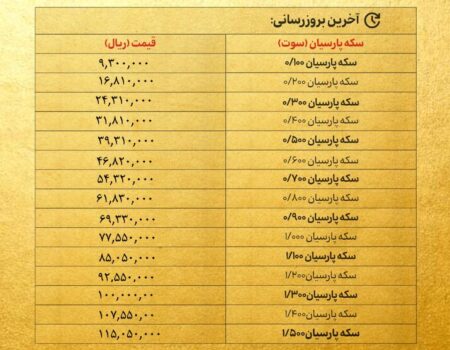 آخرین بروزرسانی:
سکه پارسیان (سوت) قیمت (ریال)
سکه پارسیان ۰/۱۰۰ ۹,۳۰۰,۰۰۰
سکه پارسیان ۰/۲۰۰ ۱۶,۸۱۰,۰۰۰
سکه پارسیان ۰/۳۰۰ ۲۴,۳۱۰,۰۰۰
سکه پارسیان ۰/۴۰۰ ۳۱,۸۱۰,۰۰۰
سکه پارسیان ۰/۵۰۰ ۳۹,۳۱۰,۰۰۰
سکه پارسیان ۰/۶۰۰ ۴۶,۸۲۰,۰۰۰
سکه پارسیان ۰/۷۰۰ ۵۴,۳۲۰,۰۰۰
سکه پارسیان ۰/۸۰۰ ۶۱,۸۳۰,۰۰۰
سکه پارسیان ۰/۹۰۰ ۶۹,۳۳۰,۰۰۰
سکه پارسیان ۱/۰۰۰ ۷۷,۵۵۰,۰۰۰
سکه پارسیان ۱/۱۰۰ ۸۵,۰۵۰,۰۰۰
سکه پارسیان ۱/۲۰۰ ۹۲,۵۵۰,۰۰۰
سکه پارسیان ۱/۳۰۰ ۱۰۰,۰۰۰,۰۰
سکه پارسیان ۱/۴۰۰ ۱۰۷,۵۵۰,۰۰
سکه پارسیان ۱/۵۰۰ ۱۱۵,۰۵۰,۰۰۰